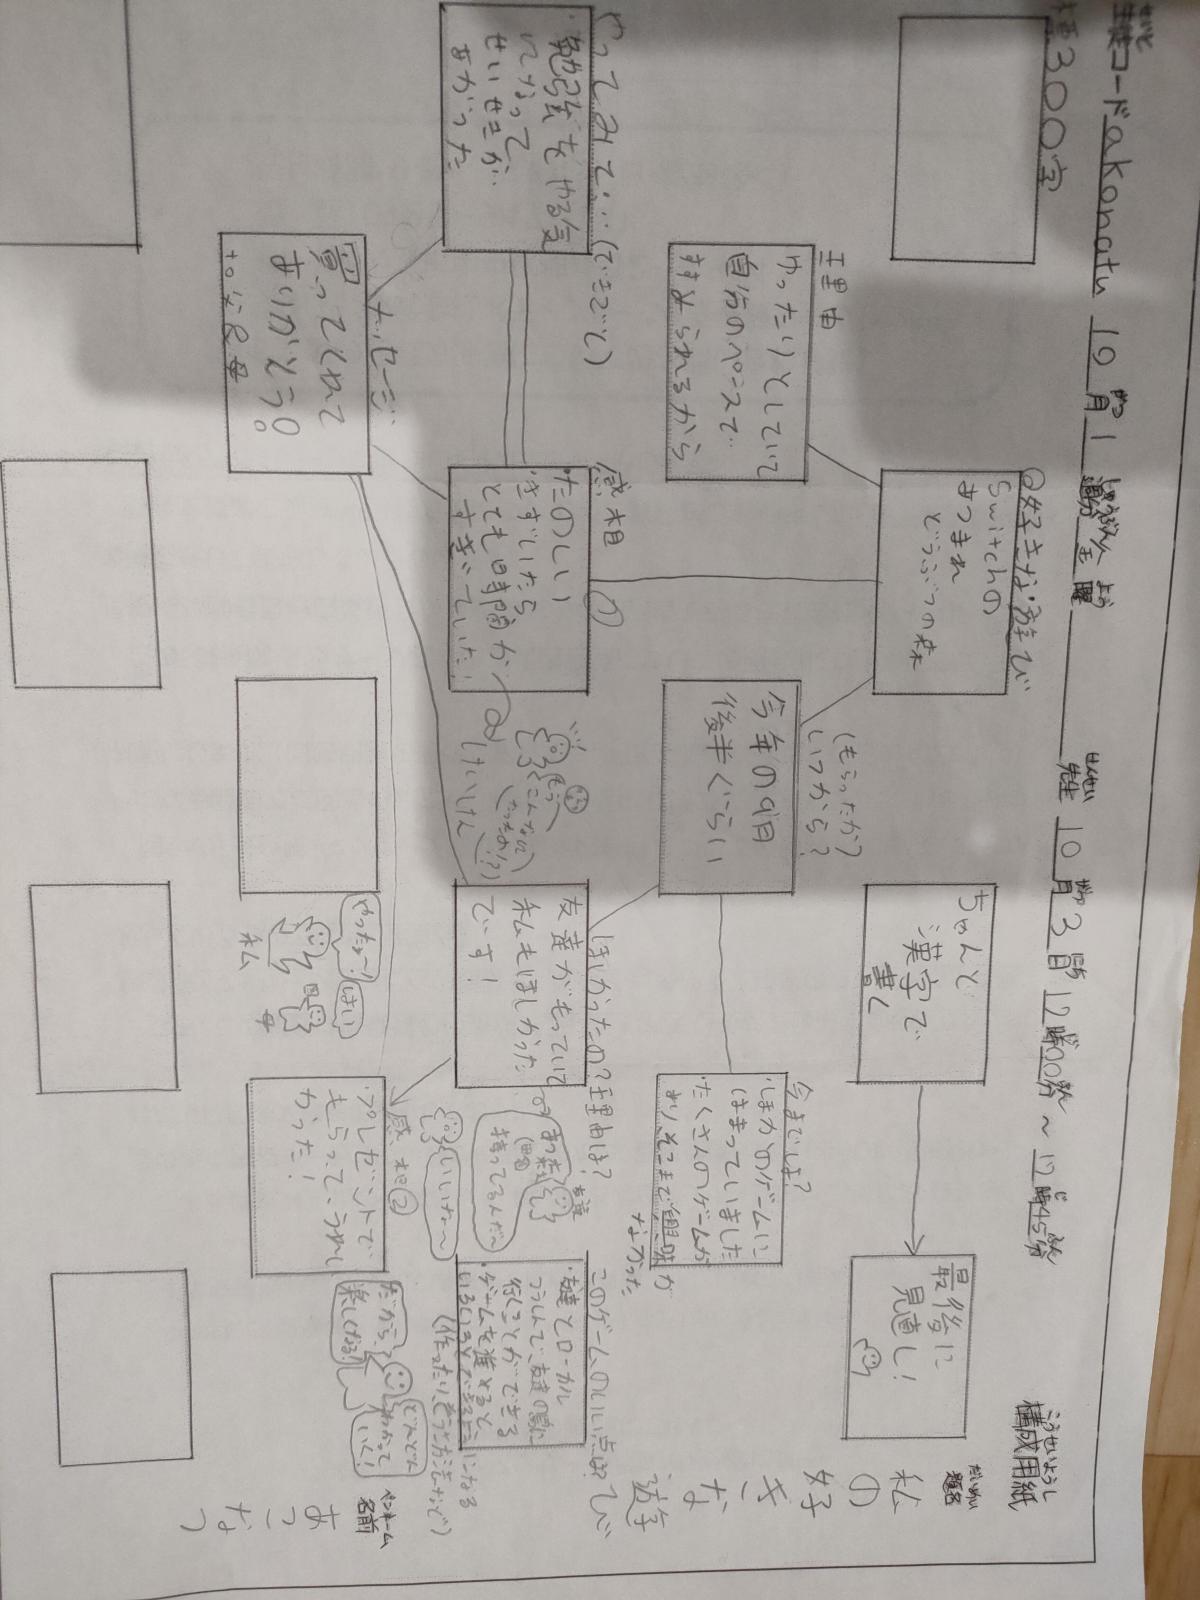 構成用紙
こうせいようし
題名
だいめい
私の好きな遊び
ペンネーム
名前
あこなつ
生徒コード akonatu
せいと
10月1週分金曜
先生
せんせい
10月3日12時00分～12時45分
300字
◎好きな遊び
Switchの
あつまれ
どうぶつの森
理由
ゆったりとしていて
自分のペースで
すすめられるから
(もらったか?
いつから?
今年の9月
後半ぐらい
ちゃんと
漢字で
書く
最後に
見直し!
今までは?
・ほかのゲームに
はまっていました
・たくさんのゲームが
あり、そこまで興味が
なかった
やってみて…(できごと)
・勉強をやる気
になって
せいせきが
あがった
感想①
・たのしい
・きずいたら
とても時間が
すぎていた!
もう
こんなに
たったの!?
ほしかったの?理由は?
友達がもっていて
私もほしかった
です!
友達
あつ森
持ってるんだ～
いいな～
このゲームのいい点は?
・友達とローカル
つうしんで、友達の島に
行くことができる
・ゲームを進めると、
いろいろとできることになる
(作ったり、使う方法など)
メッセージ
買ってくれて
ありがとう。
to父&母
やったぁ～!
はい
私
母
感想②
・プレゼントで
もらって、うれし
かった!
だから、
楽しくなる!
どんどん
わかって
いく!